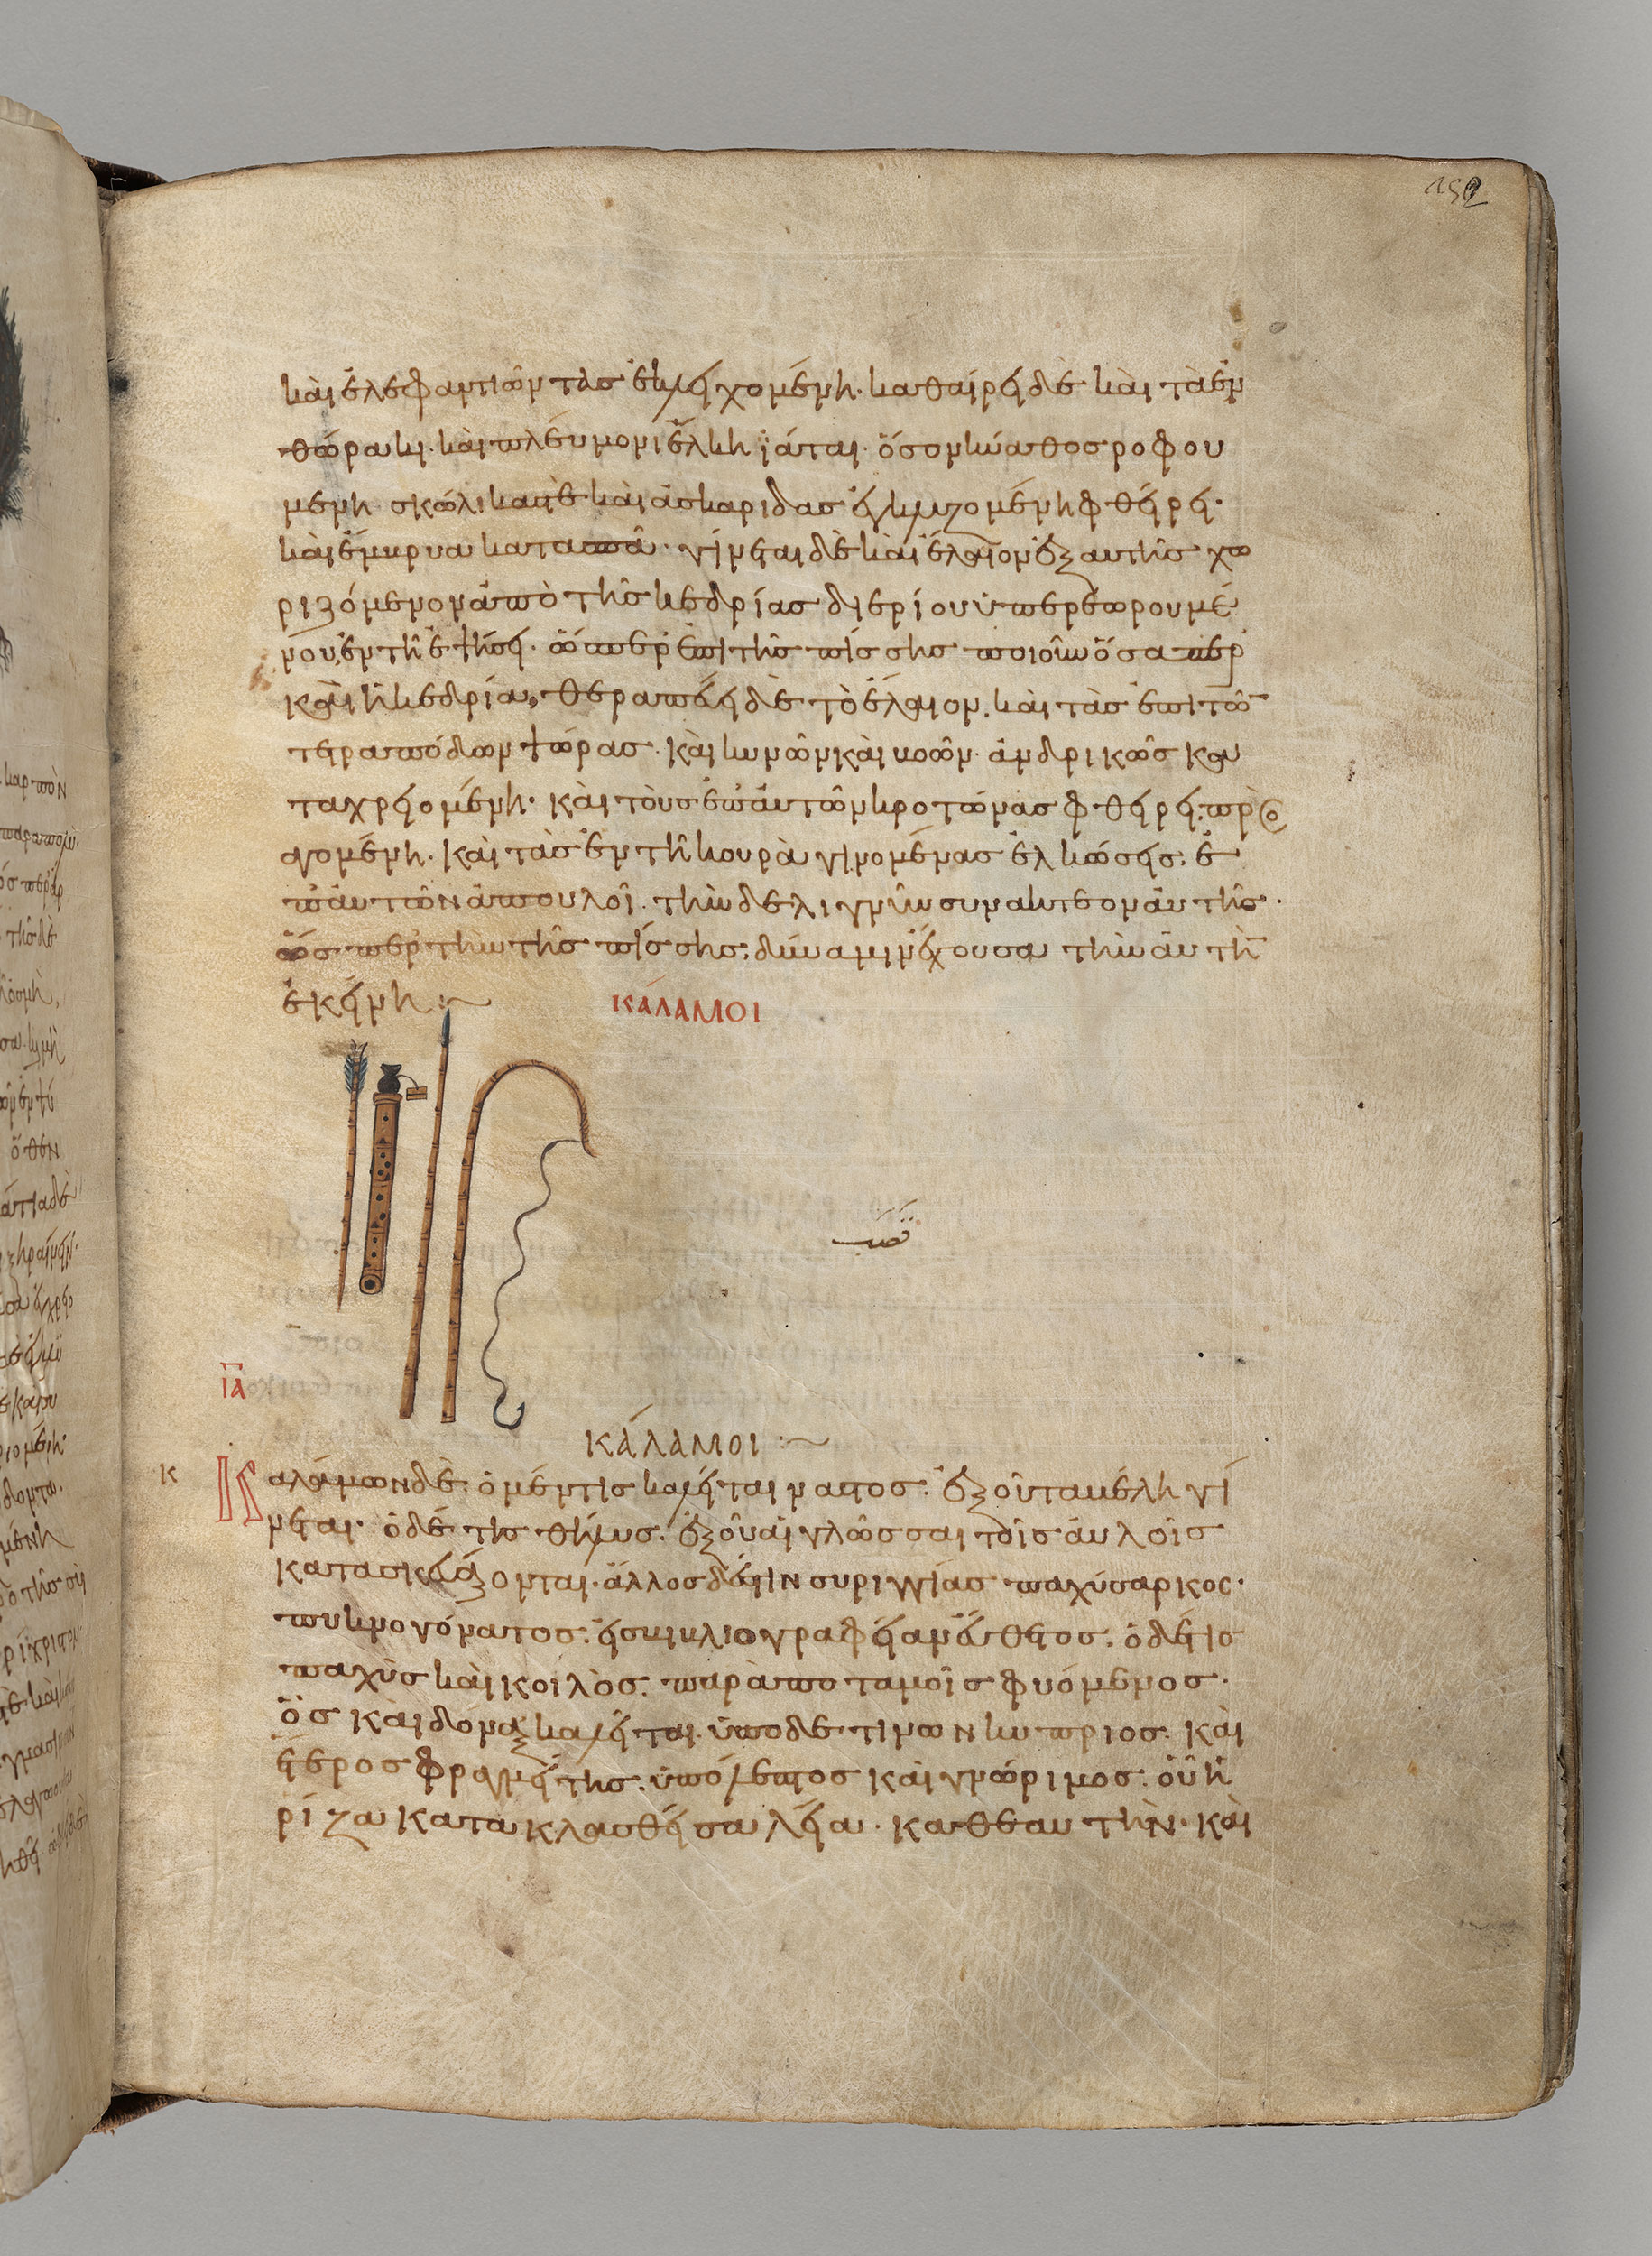 152
καὶ ἐλεφαντιῶντας ἐκλειχομένη. καθαίρει δὲ καὶ τὰ ἐν
θώρακι. καὶ πλεύμονι ἕλκη ἰᾶται. ὅσον κύαθος ῥοφου
μένη σκώληκας τε καὶ ἀσκαρίδας ἐγκλυζομένη φθείρει.
καὶ ἔμβρυα κατασπᾶ. γίνεται δὲ καὶ ἔλαιον ἐξ αυτῆς χω
ριζόμενον ἀπὸ τῆς κεδρίας δι ερίου ὑπερεωρουμέ
νου, ἐν τῆ ἑψήσει. ὥσπερ ἐπὶ τῆς πίσσης ποιοῦν ὅσα περ
καὶ ἡ κεδρία, θεραπεύει δὲ τὸ ἔλαιον. καὶ τὰς ἐπὶ τῶ
τετραπόδων ψώρας. καὶ κυνῶν καὶ βοῶν. ἀνδρικῶς κα
ταχρειομένη. καὶ τοὺς ἐπ ἀυτῶν κροτώνας φθείρει. πρὸσ
αγομένη. καὶ τὰς ἐν τῆ κουρὰ γινομένας ἑλκώσεις. ἐ
π ἀυτῶν ἀπουλοῖ. τὴν δε λιγνὺν συνακτεον ἀυτῆς.
ὥσπερ τὴν τῆς πίσσης. δύναμιν ἔχουσα τὴν ἀυτὴ
ἐκείνη :~
ΚΆΛΑΜΟΙ
قصب
ια
ΚΆΛΑΜΟΙ :~
κ
Καλάμων δὲ. ὁ μέν τις καλεῖται ναστος. ἐξ οὗ τα βέλη γί
νεται. ὁ δέ τις θῆλυς. ἐξ οὗ αἱ γλῶσσαι τοῖς ἀυλοῖς
κατασκευάζονται. ἄλλος δέ τιν συριγγίας παχύσαρκος.
πυκνογόνατος. εἰς βιβλιογραφεία νεύθετος. ὁ δέ τις
παχὺς καὶ κοιλὸς. παρὰ ποταμοῖς φυόμενος.
ὃς καὶ δοναξ καλεῖται. ὑπο δε τινων κυπριος. καὶ
ἕτερος φραγμείτης. ὑπόλεπτος καὶ γνώριμος. οὗ ἡ
ρίζα κατακλασθεῖσα λεία. καθ εαυτὴν. καὶ